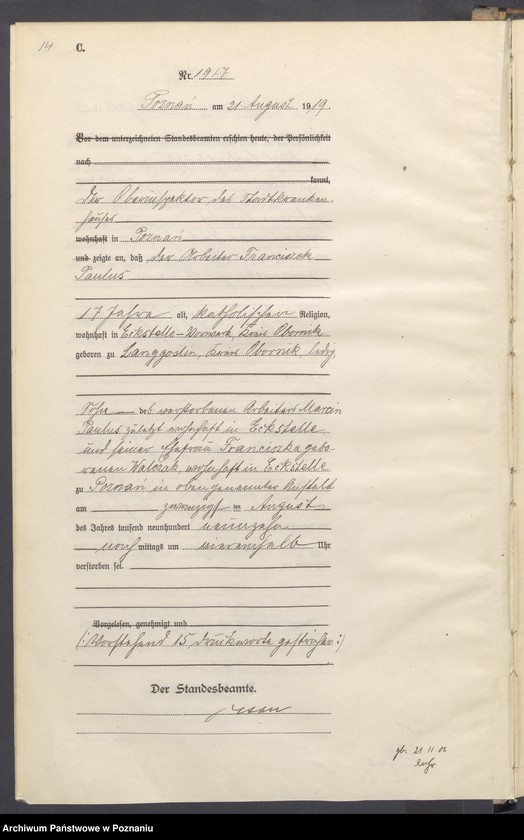 14
C.
Nr. 1917
Poznań am 21 August 1919.
Vor dem unterzeichneten Standesbeamten erschien heute, der Persönlichkeit
nach
kannt,
Der Oberinspektor des Stadtkranken
hauses
wohnhaft in Poznań
und zeigte an, daß der Arbeiter Franciszek
Paulus
17 Jahre alt, katholischer Religion,
wohnhaft in Eckstelle-Vorwerk, Kreis Obornik
geboren zu Langgoslin, Kreis Obornik, ledig,
Sohn des verstorbenen Arbeiters Marcin
Paulus zuletzt wohnhaft in Eckstelle
und seiner Ehefrau Franciszka gebo
renen Walczak, wohnhaft in Eckstelle
zu Poznań in obengenannter Anstalt
am zwanzigsten August
des Jahres tausend neunhundert neunzehn
nach mittags um viereinhalb Uhr
verstorben sei.
Vorgelesen, genehmigt und
(: Vorstehend 15 Druckworte gestrichen :)
Der Standesbeamte.
gb. 21 11 01
Archiwum Państwowe w Poznaniu